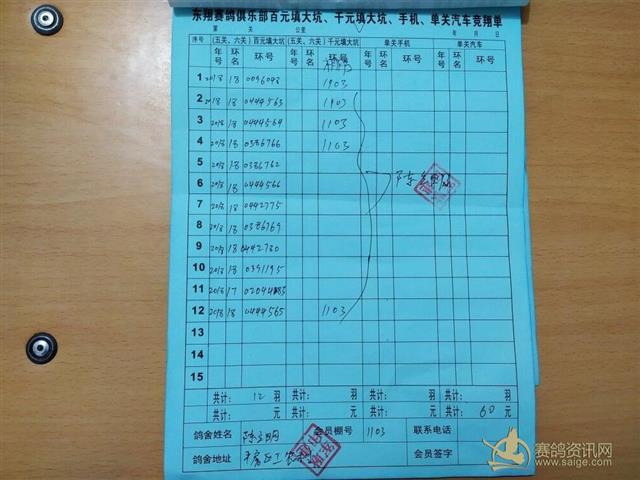 东翔赛鸽俱乐部百元填大坑、千元填大坑、手机、单关汽车竞翔单
第 关 公里 年 月 日
序号 (五关、六关)百元填大坑 (五关、六关)千元填大坑 单关手机 单关汽车
年号 环名 环号 年号 环名 环号 年号 环名 环号 年号 环名 环号
1 2018 18 0096048 1903
2 2018 18 0444563 1903
3 2018 18 0444564 1103
4 2018 18 0386766 1103
5 2018 18 0386762
6 2018 18 0444566
7 2018 18 0442775
8 2018 18 0386769
9 2018 18 0442780
10 2018 18 0391195
11 2018 17
12 2018 18 0444565 1103
13
14
15
共计: 12 羽 共计: 羽 共计: 羽 共计: 羽
共计: 元 共计: 元 共计: 元 共计: 60 元
鸽舍姓名 会员棚号 1103 联系电话
鸽舍地址 会员签字
赛鸽资讯网
www.saige.com